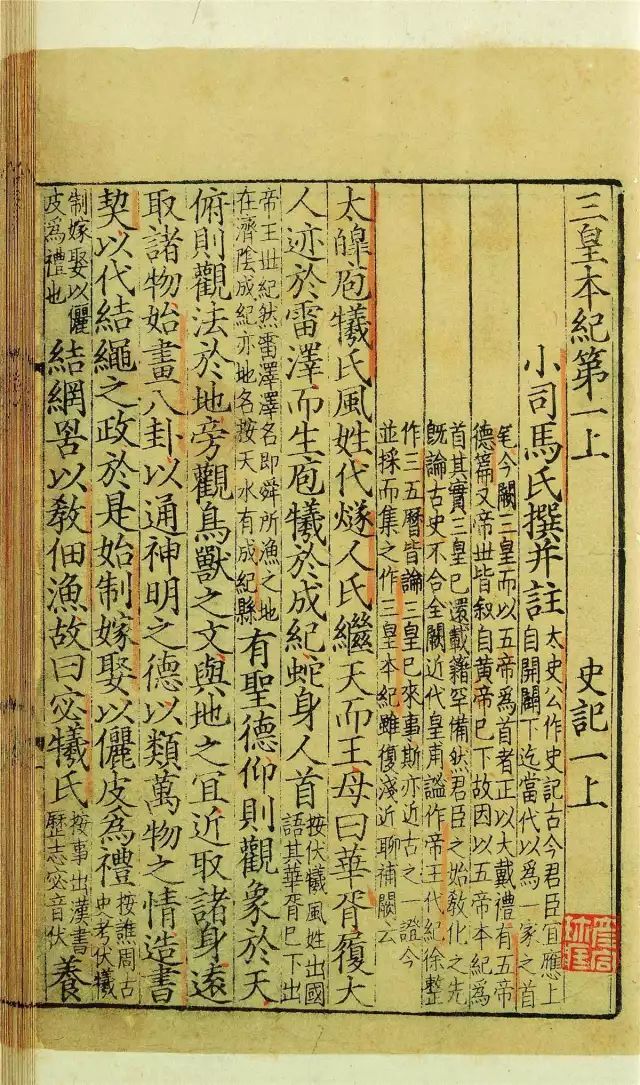 三皇本紀第一上 史記一上
小司馬氏撰并註
太史公作史記古今君臣宜應上
自開闢下迄當代以為一家之首
尾今闕三皇而以五帝為首者正以大戴禮有五帝
德篇又帝世皆叙自黃帝已下故因以五帝本紀為
首其實三皇已還載籍罕備然君臣之始教化之先
既論古史不合全闕近代皇甫謐作帝王代紀徐整
作三五曆皆論三皇已來事斯亦近古之一證今
並採而集之作三皇本紀雖復淺近聊補闕云
太皥庖犧氏風姓代燧人氏繼天而王母曰華胥履大
人迹於雷澤而生庖犧於成紀蛇身人首
按伏犧風姓出國
語其華胥已下出
帝王世紀然雷澤澤名即舜所漁之地
在濟陰成紀亦地名按天水有成紀縣
有聖德仰則觀象於天
俯則觀法於地旁觀鳥獸之文與地之宜近取諸身遠
取諸物始畫八卦以通神明之德以類萬物之情造書
契以代結繩之政於是始制嫁娶以儷皮為禮
按譙周古
史考伏犧
制嫁娶以儷
皮爲禮也
結網罟以教佃漁故曰宓犧氏
按事出漢書
歷志宓音伏
養